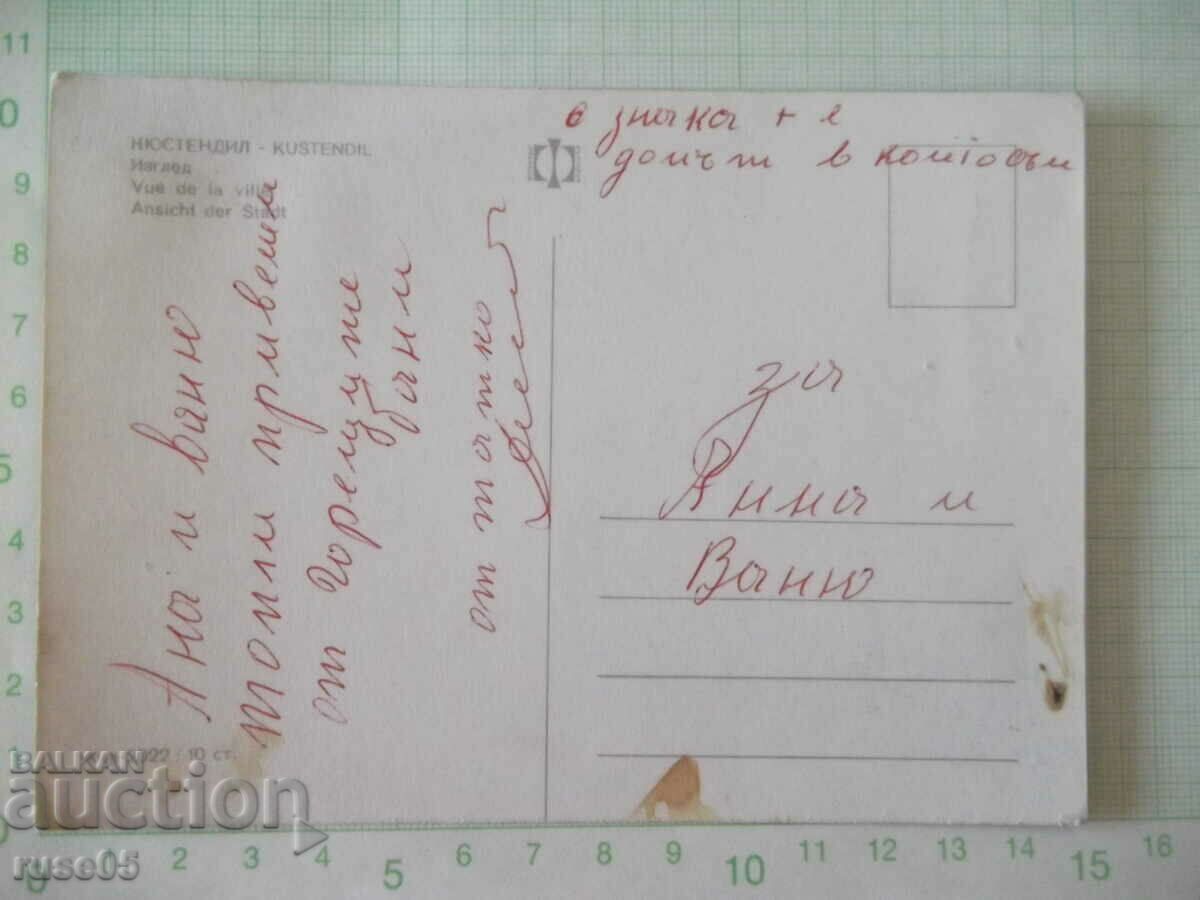 КЮСТЕНДИЛ - KUSTENDIL
Изглед
Vue de la ville
Ansicht der Stadt
с значка + е
домът в който съм
Ана и Ваню
топли привети
от Горещите
бани
от татко
за
Анна и
Ваню
022 / 10 ст.
BALKAN
auction
ruse05
11
10
9
8
7
6
5
4
3
2
1
0
0
2
3
4
5
6
7
8
9
10
11
12
13
14
15
16